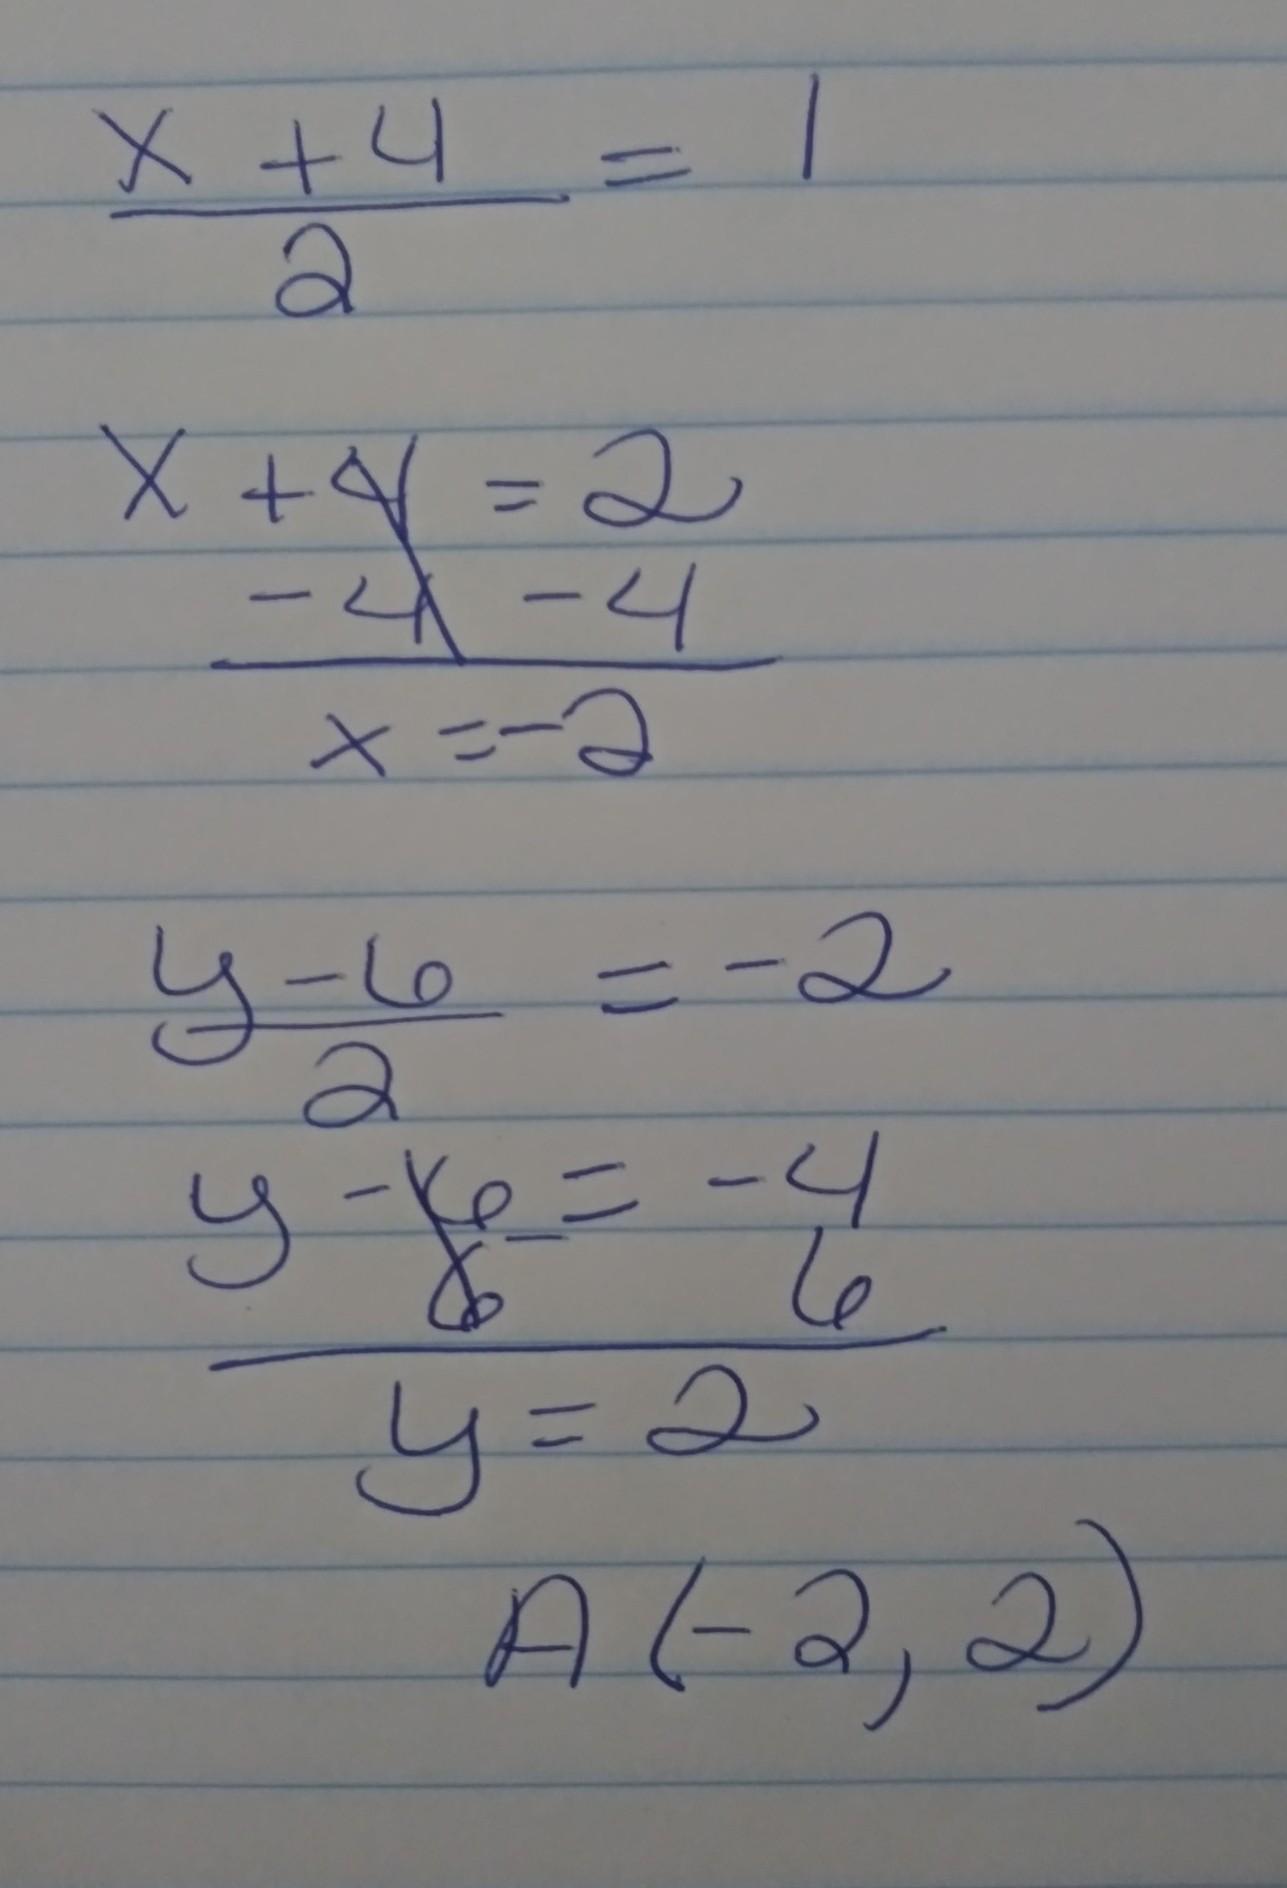 x + 4 = 1
2
x + 4 = 2
- 4 - 4
x = -2
y - 6 = -2
2
y - 6 = -4
6 6
y = 2
A (-2, 2)